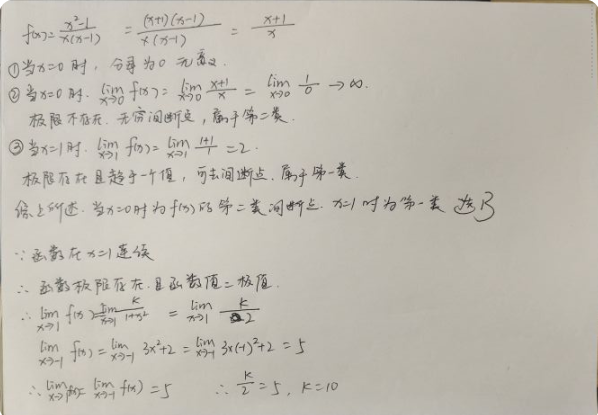 f(x)=\frac{x²-1}{x(x-1)} = \frac{(x+1)(x-1)}{x(x-1)} = \frac{x+1}{x}
①当x=0时，分母为0 无意义.
②当x=0时. \lim_{x→0} f(x)= \lim_{x→0} \frac{x+1}{x} = \lim_{x→0} \frac{1}{0} → ∞.
极限不存在. 无穷间断点，属于第二类.
③当x=1时. \lim_{x→1} f(x)= \lim_{x→1} \frac{1+1}{1} = 2.
极限存在且趋于一个值，可去间断点. 属于第一类.
综上所述. 当x=0时为f(x)的第二类间断点. x=1时为第一类 选B
∵函数在x=1连续
∴函数极限存在.且函数值=极值.
∴ \lim_{x→1} f(x)= \lim_{x→1} \frac{k}{1+x²} = \lim_{x→1} \frac{k}{2}
\lim_{x→-1} f(x)= \lim_{x→-1} 3x²+2 = \lim_{x→-1} 3×(-1)²+2 = 5
∴ \lim_{x→1} f(x)= \lim_{x→-1} f(x) = 5 ∴ \frac{k}{2}=5, k=10